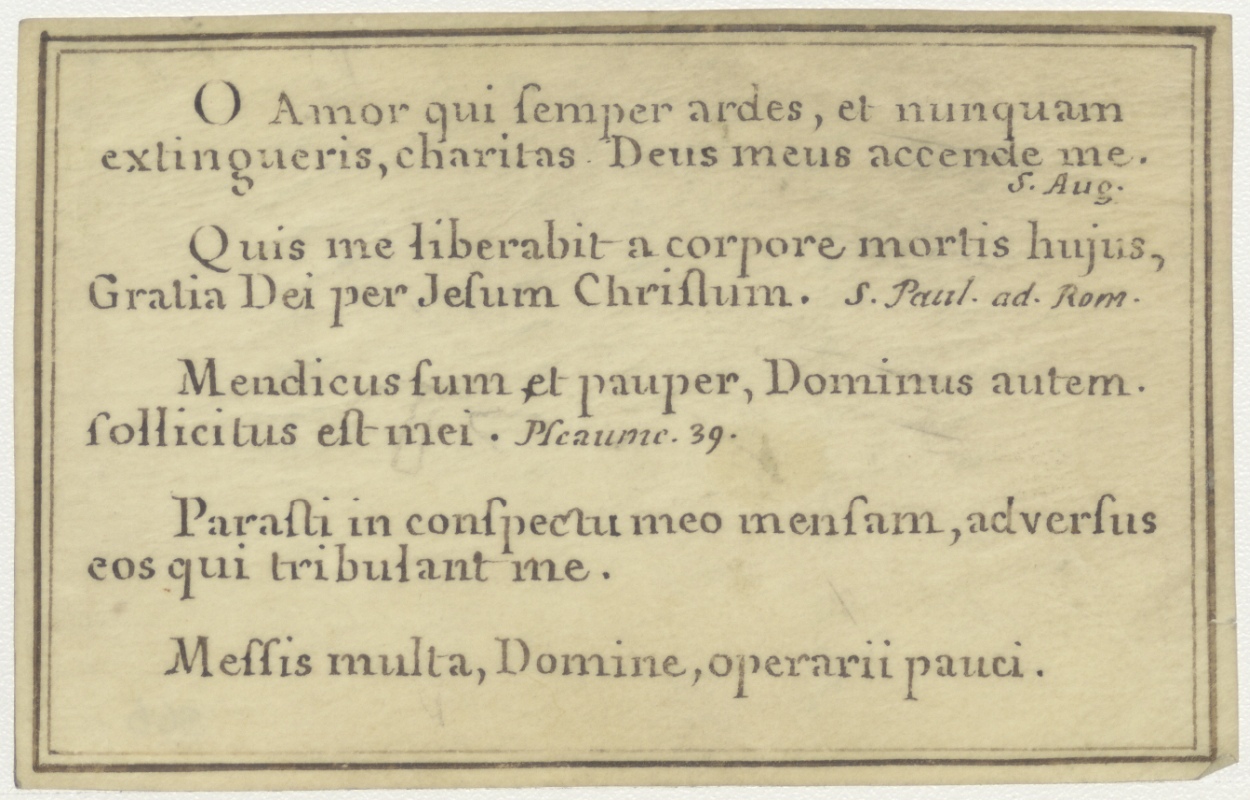 O Amor qui ſemper ardes, et nunquam
extingueris, charitas Deus meus accende me.
S. Aug.
Quis me liberabit a corpore mortis hujus,
Gratia Dei per Jeſum Chriſtum. S. Paul. ad. Rom.
Mendicus ſum et pauper, Dominus autem.
ſollicitus eſt mei. Pſeaume. 39.
Paraſti in conſpectu meo menſam, adverſus
eos qui tribulant me.
Meſſis multa, Domine, operarii pauci.